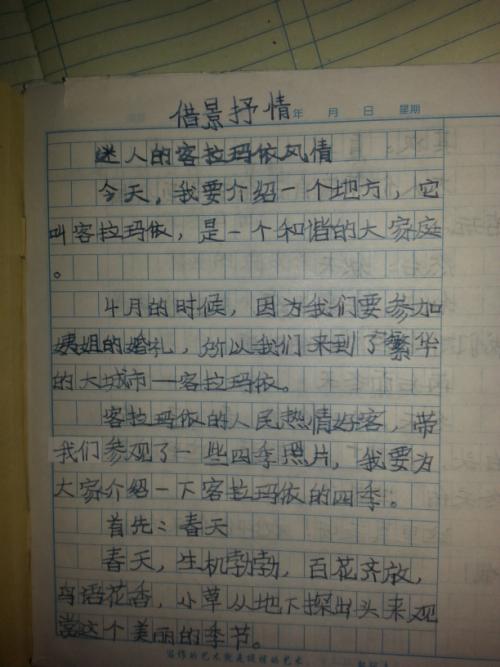 借景抒情
年 月 日 星期
迷人的客拉玛依风情
今天，我要介绍一个地方，它
叫客拉玛依，是一个和谐的大家庭
。
4月的时候，因为我们要参加
姨姐的婚礼，所以我们来到了繁华
的大城市一客拉玛依。
客拉玛依的人民热情好客，带
我们参观了一些四季照片，我要为
大家介绍一下客拉玛依的四季。
首先：春天
春天，生机勃勃，百花齐放，
鸟语花香，小草从地下探出头来观
赏这个美丽的季节。